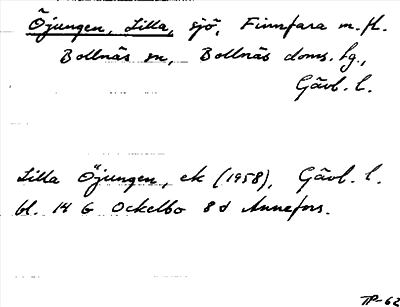 Öjungen, Lilla, sjö, Finnfara m.fl.
Bollnäs sn, Bollnäs doms. lg.,
Gävl. l.
Lilla Öjungen, ek (1958), Gävl. l.
bl. 14 G Ockelbo 8 d Annefors.
TP-62